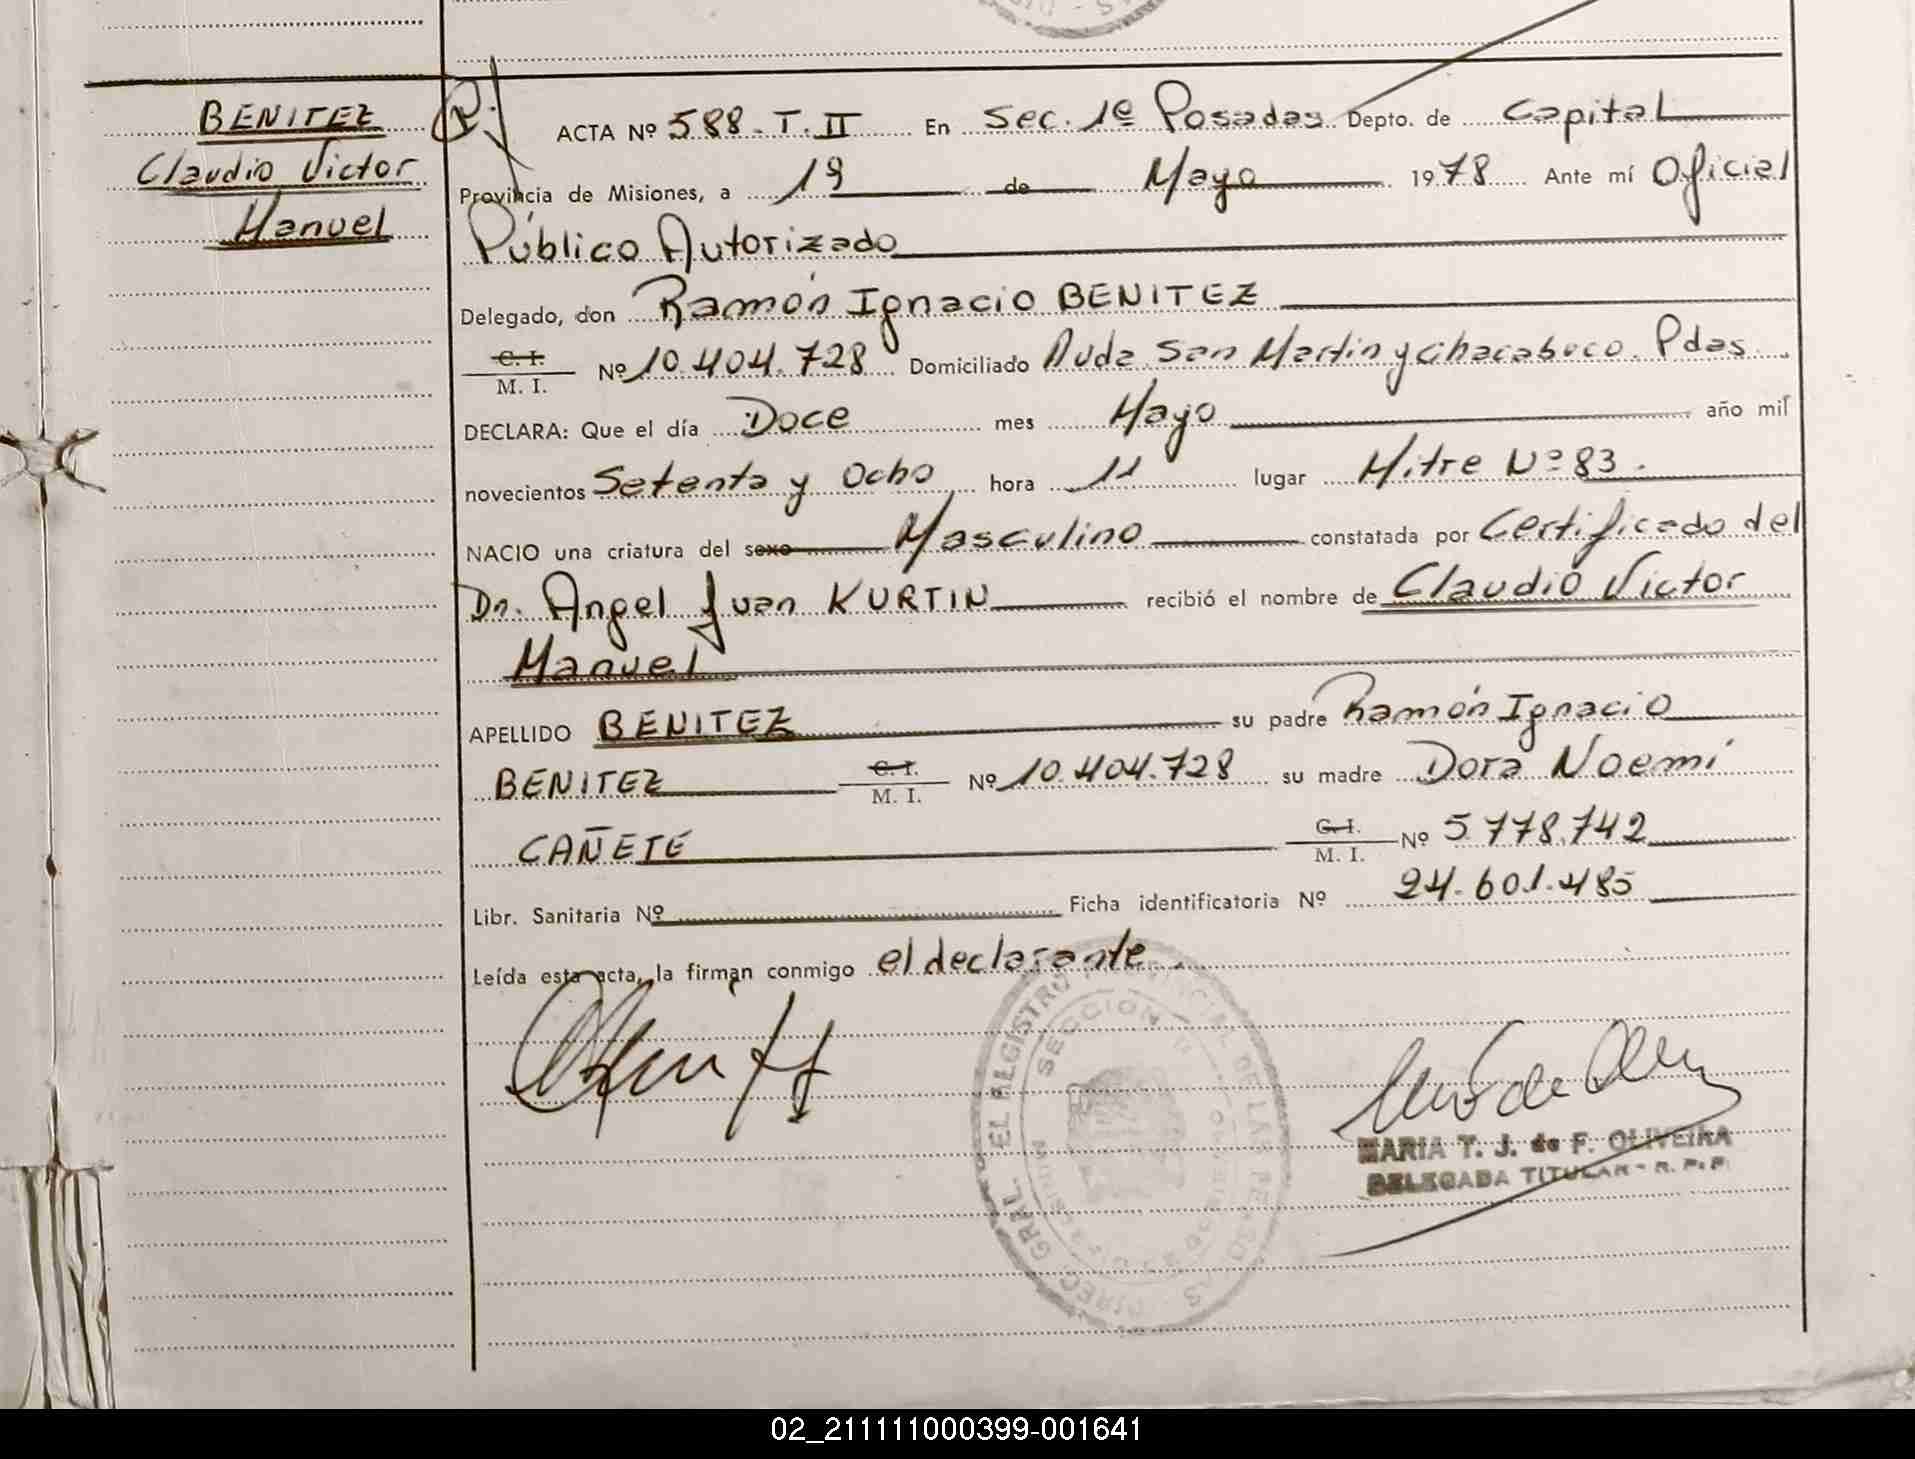 BENITEZ
Claudio Victor
Manuel
ACTA Nº 588. T. II En Sec. 1ª Posadas Depto. de Capital
Provincia de Misiones, a 19 de Mayo 1978 Ante mí Oficial
Público Autorizado
Delegado, don Ramón Ignacio BENITEZ
C. I.
M. I. Nº 10.404.728 Domiciliado Avda. San Martin y Chacabuco. Pdas.
DECLARA: Que el día Doce mes Mayo año mil
novecientos Setenta y Ocho hora 11 lugar Mitre Nº 83.
NACIO una criatura del sexo Masculino constatada por Certificado del
Dr. Angel Juan KURTIN recibió el nombre de Claudio Victor
Manuel
APELLIDO BENITEZ su padre Ramón Ignacio
BENITEZ C. I. M. I. Nº 10.404.728 su madre Dora Noemí
CAÑETE C. I. M. I. Nº 5.778.742
Libr. Sanitaria Nº Ficha identificatoria Nº 24.601.485
Leída esta acta, la firman conmigo el declarante.
DIREC. GRAL. EL REGISTRO PROVINCIAL DE LAS PERSONAS
SECCION
MARIA T. J. de F. OLIVEIRA
DELEGADA TITULAR - R. P. P.
02_211111000399-001641